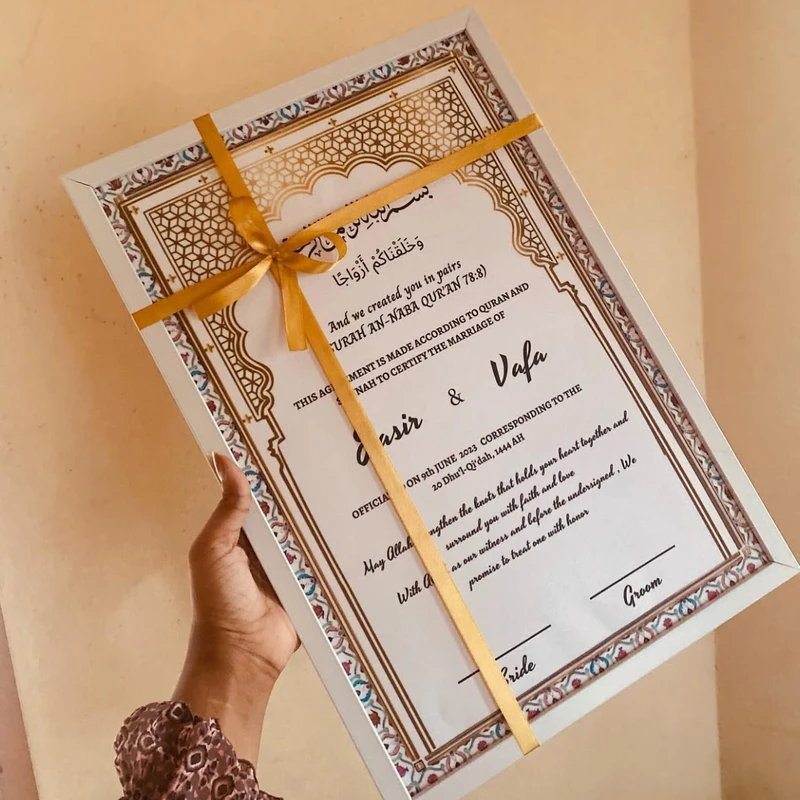 وَخَلَقْنَاكُمْ أَزْوَاجًا
And we created you in pairs
SURAH AN-NABA QUR'AN 78:8)
THIS AGREEMENT IS MADE ACCORDING TO QURAN AND
SUNNAH TO CERTIFY THE MARRIAGE OF
& Vafa
ON 9th JUNE 2023 CORRESPONDING TO THE
20 Dhu'l-Qi'dah, 1444 AH
May Allah strengthen the knots that holds your heart together and
surround you with faith and love
With as our witness and before the undersigned . We
promise to treat one with honor
Groom
Bride